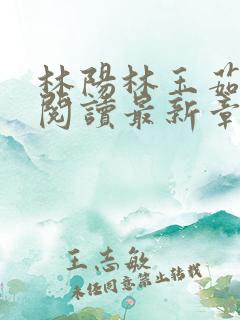 林陽林玉茹
閱讀最新章
王志敏
未经同意禁止转载